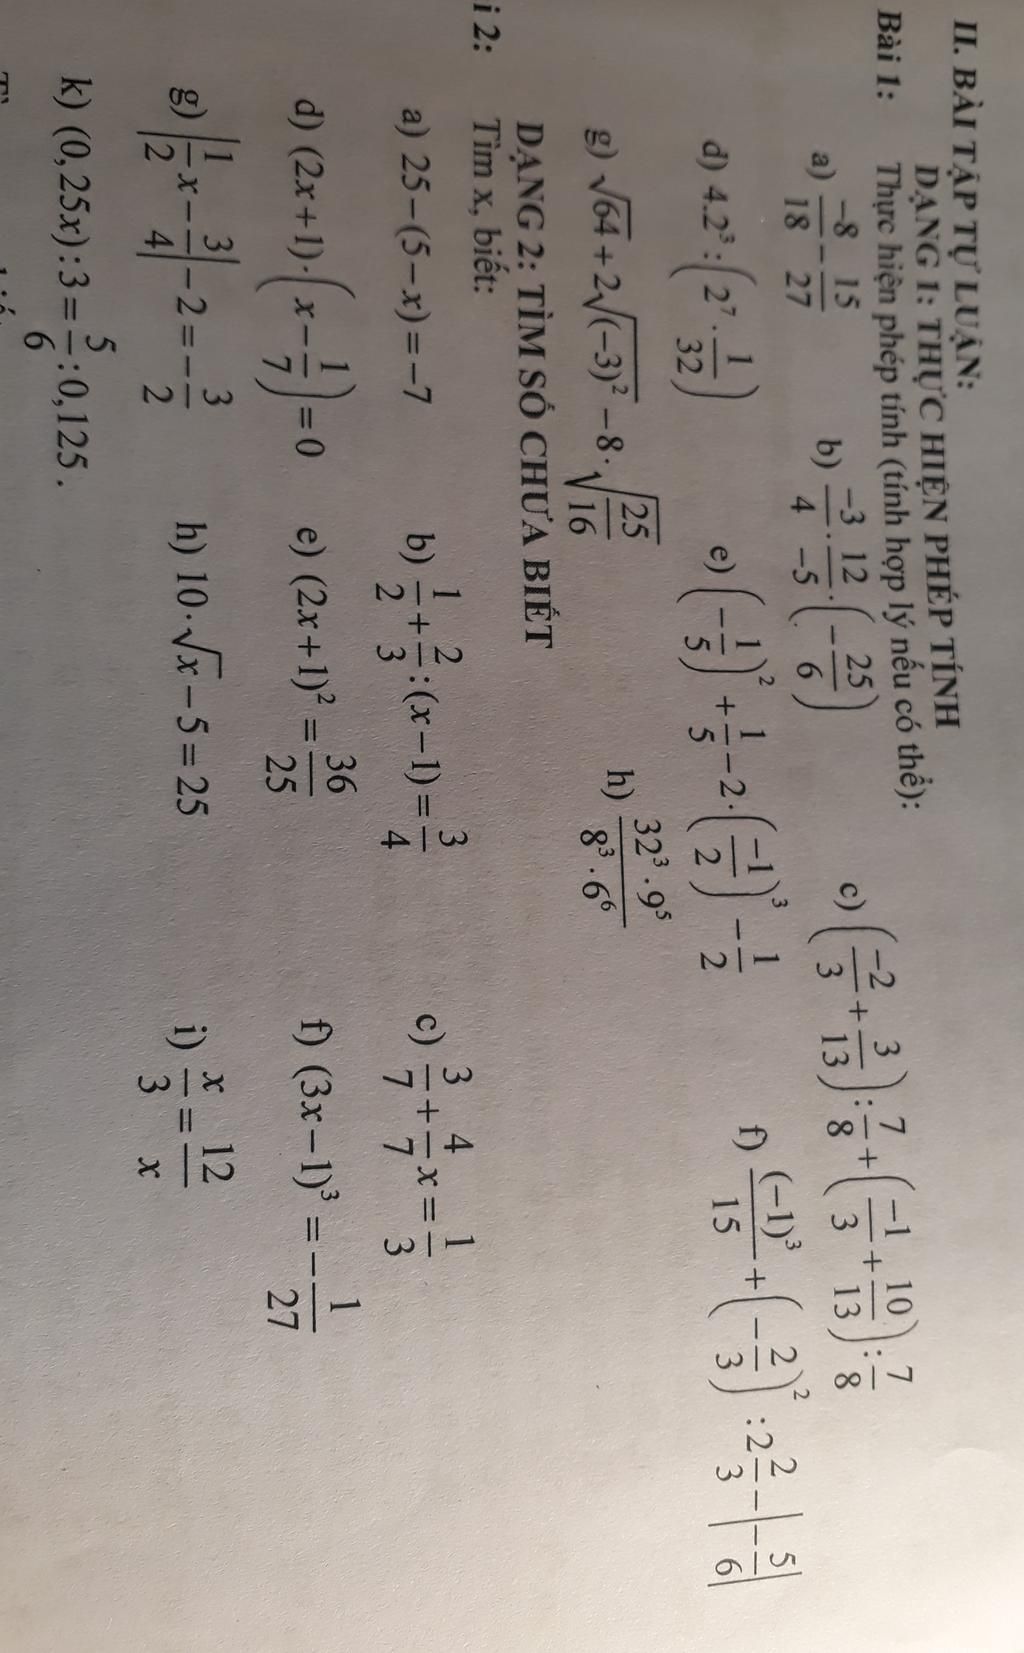 II. BÀI TẬP TỰ LUẬN:
DẠNG 1: THỰC HIỆN PHÉP TÍNH
Bài 1: Thực hiện phép tính (tính hợp lý nếu có thể):
a) \frac{-8}{18} - \frac{15}{27} b) \frac{-3}{4} \cdot \frac{12}{-5} \cdot \left(-\frac{25}{6}\right) c) \left(\frac{-2}{3} + \frac{3}{13}\right) : \frac{7}{8} + \left(\frac{-1}{3} + \frac{10}{13}\right) : \frac{7}{8}
d) 4.2^3 : \left(2^7 \cdot \frac{1}{32}\right) e) \left(-\frac{1}{5}\right)^2 + \frac{1}{5} - 2 \cdot \left(\frac{-1}{2}\right)^3 - \frac{1}{2} f) \frac{(-1)^3}{15} + \left(-\frac{2}{3}\right)^2 : 2\frac{2}{3} - \left|-\frac{5}{6}\right|
g) \sqrt{64} + 2\sqrt{(-3)^2} - 8 \cdot \sqrt{\frac{25}{16}} h) \frac{32^3 \cdot 9^5}{8^3 \cdot 6^6}
DẠNG 2: TÌM SỐ CHƯA BIẾT
i 2: Tìm x, biết:
a) 25 - (5 - x) = -7 b) \frac{1}{2} + \frac{2}{3} : (x - 1) = \frac{3}{4} c) \frac{3}{7} + \frac{4}{7}x = \frac{1}{3}
d) (2x + 1) \cdot \left(x - \frac{1}{7}\right) = 0 e) (2x + 1)^2 = \frac{36}{25} f) (3x - 1)^3 = -\frac{1}{27}
g) \left|\frac{1}{2}x - \frac{3}{4}\right| - 2 = -\frac{3}{2} h) 10 \cdot \sqrt{x} - 5 = 25 i) \frac{x}{3} = \frac{12}{x}
k) (0,25x) : 3 = \frac{5}{6} : 0,125 .